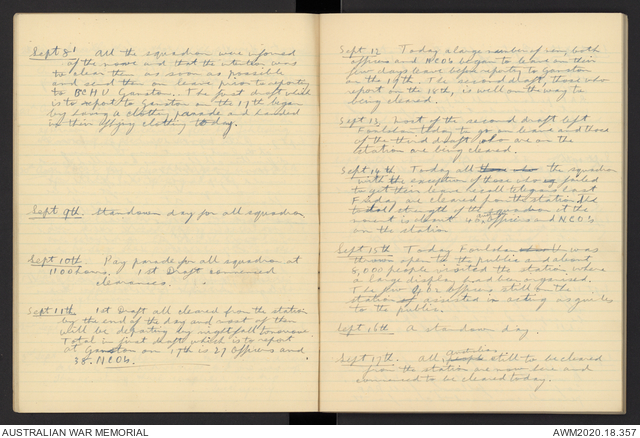 Sept 8th All the squadron were informed
of the move and that the intention was
to clear them as soon as possible
and send them on leave prior to reporting
to BCHU Gamston. The first draft which
is to report to Gamston on the 17th began
by having a clothing parade and handed
in their flying clothing today.
Sept 9th Standdown day for all squadron
Sept 10th Pay parade for all squadron at
1100 hours, 1st Draft commenced
clearances.
Sept 11th 1st Draft all cleared from the station
by the end of the day and most of them
will be departing by nightfall tomorrow
Total in first draft which is to report
at Gamston on 17th is 27 Officers and
38 NCOs.
Sept 12 Today a large number of men, both
officers and NCOs began to leave on their
few days leave before reporting to Gamston
on the 17th. The second draft, those who
report on the 18th, is well on the way to
being cleared.
Sept 13 Most of the second draft left
Foulsham today to go on leave and those
of the third draft who are on the
station are being cleared.
Sept 14th Today all the squadron
with the exception of those who failed
to get their leave recall telegrams last
Friday are cleared from the station
total strength of the squadron at the
moment is about Officers and NCOs
on the station
Sept 15th Today Foulsham was
thrown open to the public and about
8,000 people visited the station where
a large display had been organised.
The few Officers still on the
station assisted in acting as guides
to the public.
Sept 16th A standown day.
Sept 17th. All Australian people still to be cleared
from the station are now here and
commenced to be cleared today.
AUSTRALIAN WAR MEMORIAL
AWM2020.18.357